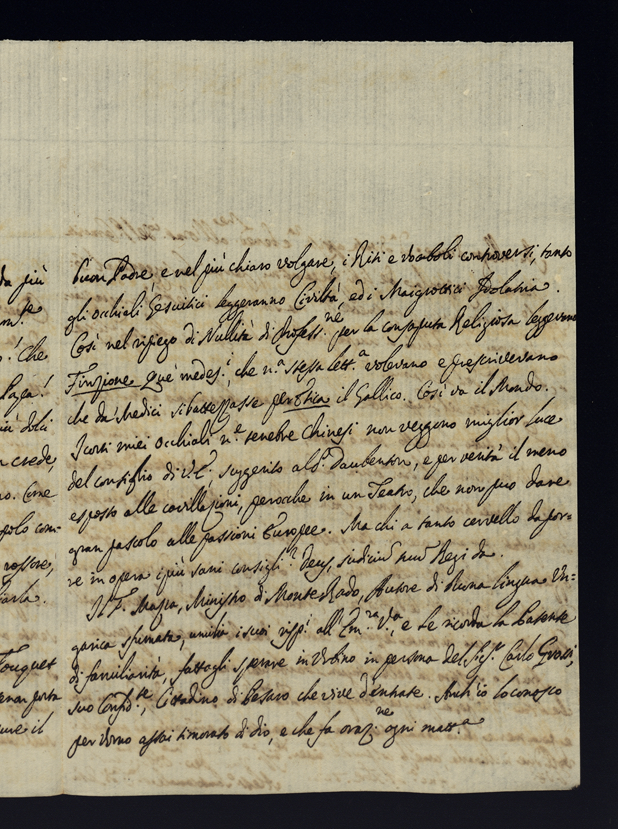 da più
m.te
! Che
Paga!
più dolci
crede,
no. Come
popolo com-
rossore,
farla.
Touquet
porta
il
buon Padre e nel più chiaro volgare, i Riti e vocaboli controversi, tanto
gli occhiali Gesuitici leggeranno Civiltà, ed i Maigrottici Idolatria.
Così nel ripiego di Nullità di Profess.ne per la consaputa Religiosa leggevano
Finzione que' medes.i, che n.a stessa lett.a volevano e prescrivevano
che da' Medici si battezzasse per Etica il Gallico. Così va il Mondo.
I corti miei occhiali n.e tenebre Chinesi non veggono miglior luce
del consiglio di V.E. suggerito al P. Daubenton, e per verità il meno
esposto alle cavillazioni, perocche in un Teatro, che non può dare
gran pascolo alle passioni Europee. Ma chi a tanto cervello da por-
re in opera i più sani consigli? Deus, judicium tuum Regi da.
Il P. Massa, Ministro di Monte Rado, Autore di buona lingua Un-
garica spumata, umilia i suoi risp.i all'Em.za V.a, e Le ricorda la Patente
di familiarità, fattagli sperare in Urbino in persona del Sig.r Carlo
suo Confid.te, Cittadino di Pesaro che vive d'entrate. Anch'io lo conosco
per Uomo assai timorato di Dio, e che fa oraz.ne ogni matt.a